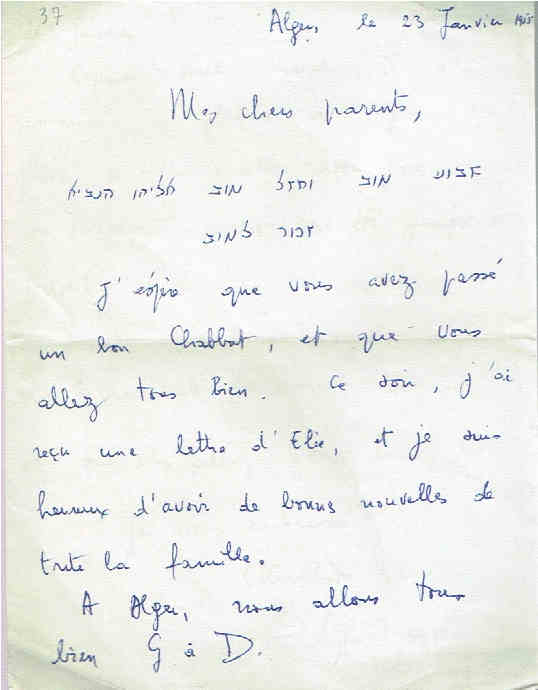 37
Alger, le 23 Janvier
Mes chers parents,
שבוע טוב ומזל טוב אליהו הנביא
זכור לטוב
J'espère que vous avez passé
un bon Chabbat, et que vous
allez tous bien. Ce soir, j'ai
reçu une lettre d'Elie, et je suis
heureux d'avoir de bonnes nouvelles de
toute la famille.
A Alger, nous allons tous
bien G à D.